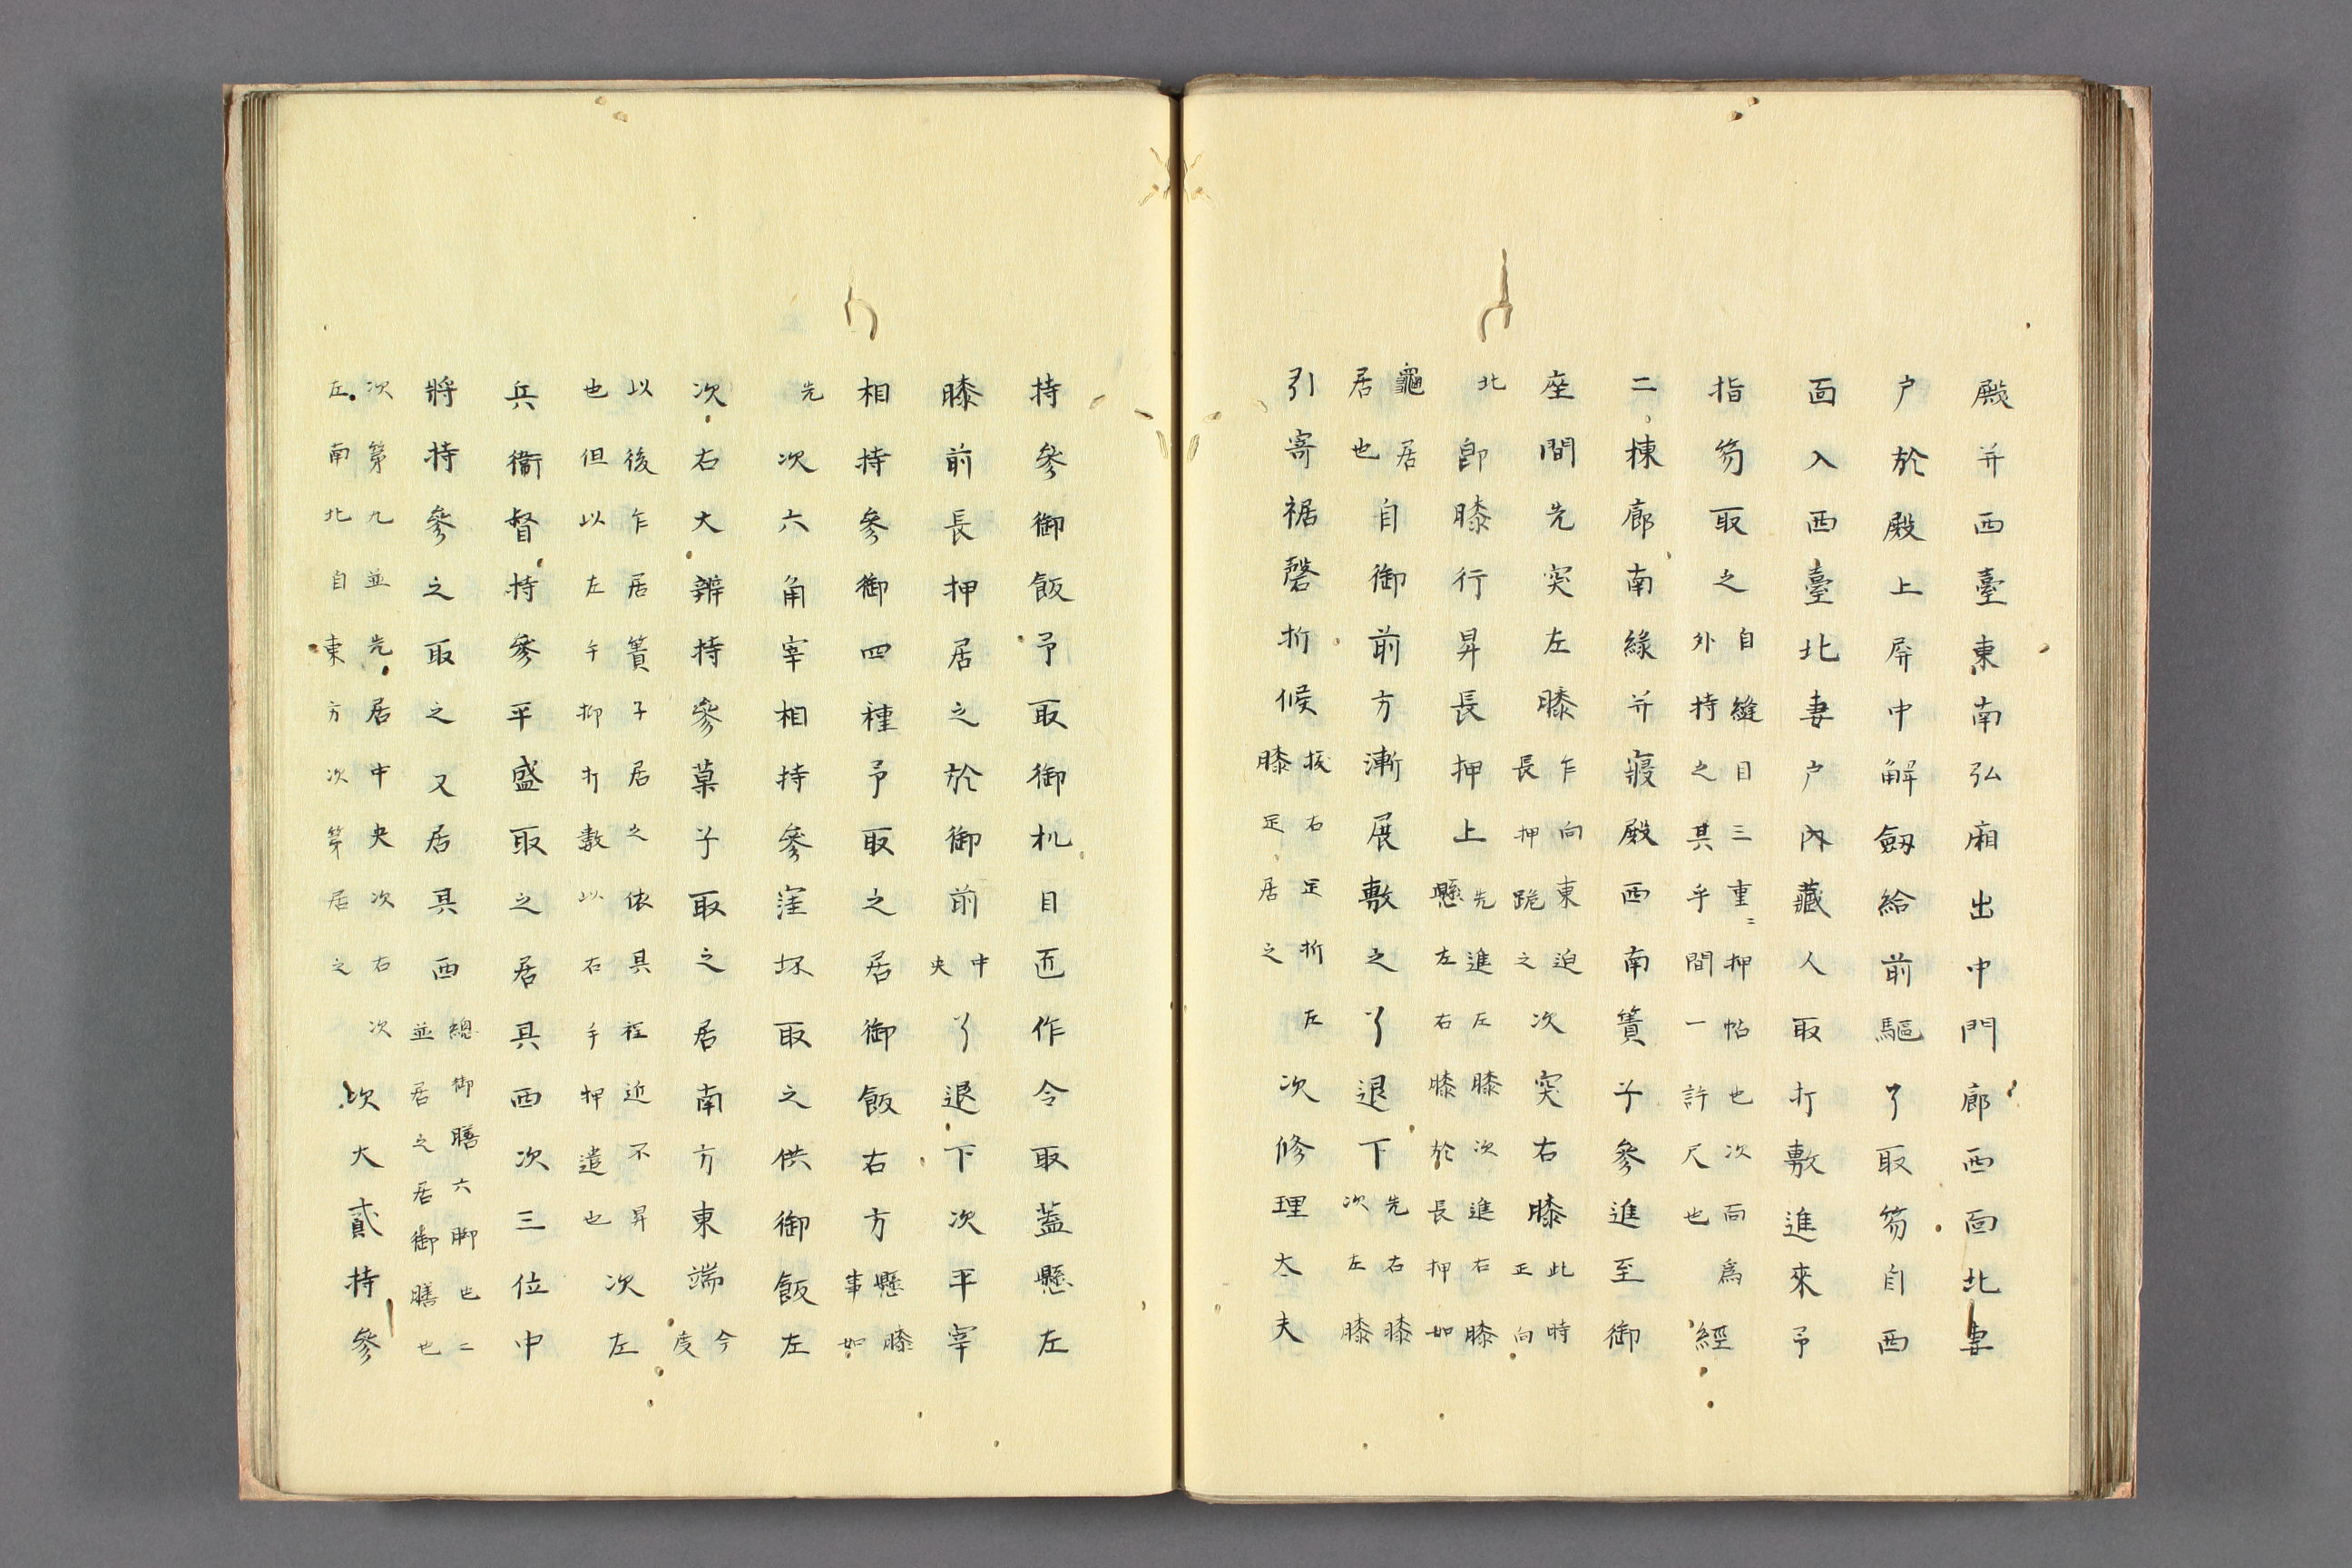 殿并西臺東南弘廂出中門廊西面北妻
戸於殿上屏中解劔給前駆了取笏自西
面入西臺北妻戸內藏人取打敷進來予
指笏取之自縫目三重ニ押帖也次面爲
外持之其乎間一許尺也經
二棟廊南緣并寢殿西南簀子參進至御
座間先突左膝乍向東迫
長押跪之次突右膝此時
正向
北即膝行昇長押上先進左膝次進右膝
懸左右膝於長押如
龜居
居也自御前方漸展敷之了退下先右膝
次左膝
引寄裾磬折候拔右足折左
膝足居之次修理大夫
持參御飯予取御机目匝作令取蓋懸左
膝前長押居之於御前中
央了退下次平宰
相持參御四種予取之居御飯右方懸膝
事如
先次六角宰相持參窪坏取之供御飯左
次右大辨持參菓子取之居南方東端今
度
以後乍居簀子居之依其程近不昇
也但以左手抑打敷以右手押遣也次左
兵衞督持參平盛取之居其西次三位中
將持參之取之又居其西總御膳六脚也二
並居之居御膳也
次第九並先居中央次右次
左南北自東方次第居之次大貳持參